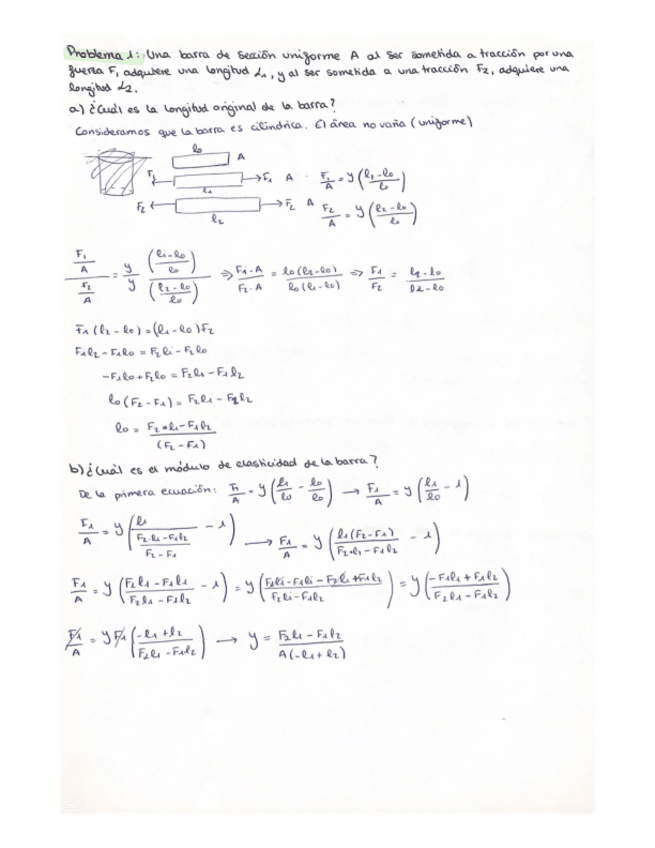 Problema 1: Una barra de sección uniforme A al ser sometida a tracción por una
fuerza F₁ adquiere una longitud L₁, y al ser sometida a una tracción F₂, adquiere una
longitud L₂.
a) ¿Cuál es la longitud original de la barra?
Consideramos que la barra es cilíndrica. El área no varía (uniforme)
l₀ A
F₁ F₁ A F₁/A = y((l₁-l₀)/l₀)
l₁
F₂ F₂ A F₂/A = y((l₂-l₀)/l₀)
l₂
(F₁/A)/(F₂/A) = y/y ((l₁-l₀)/l₀)/((l₂-l₀)/l₀) ⇒ F₁·A/F₂·A = l₀(l₂-l₀)/l₀(l₁-l₀) ⇒ F₁/F₂ = (l₁-l₀)/(l₂-l₀)
F₁(l₂-l₀)=(l₁-l₀)F₂
F₁l₂-F₁l₀=F₂l₁-F₂l₀
-F₁l₀+F₂l₀=F₂l₁-F₁l₂
l₀(F₂-F₁)=F₂l₁-F₁l₂
l₀ = (F₂·l₁-F₁l₂)/(F₂-F₁)
b) ¿Cuál es el módulo de elasticidad de la barra?
De la primera ecuación: F₁/A = y(l₁/l₀ - l₀/l₀) → F₁/A = y(l₁/l₀ - 1)
F₁/A = y(l₁/((F₂·l₁-F₁l₂)/(F₂-F₁)) - 1) → F₁/A = y(l₁(F₂-F₁)/(F₂·l₁-F₁l₂) - 1)
F₁/A = y((F₂l₁-F₁l₁)/(F₂l₁-F₁l₂) - 1) = y((F₂l₁-F₁l₁-F₂l₁+F₁l₂)/(F₂l₁-F₁l₂)) = y((-F₁l₁+F₁l₂)/(F₂l₁-F₁l₂))
F₁/A = yF₁((-l₁+l₂)/(F₂l₁-F₁l₂)) → y = (F₂l₁-F₁l₂)/(A(-l₁+l₂))